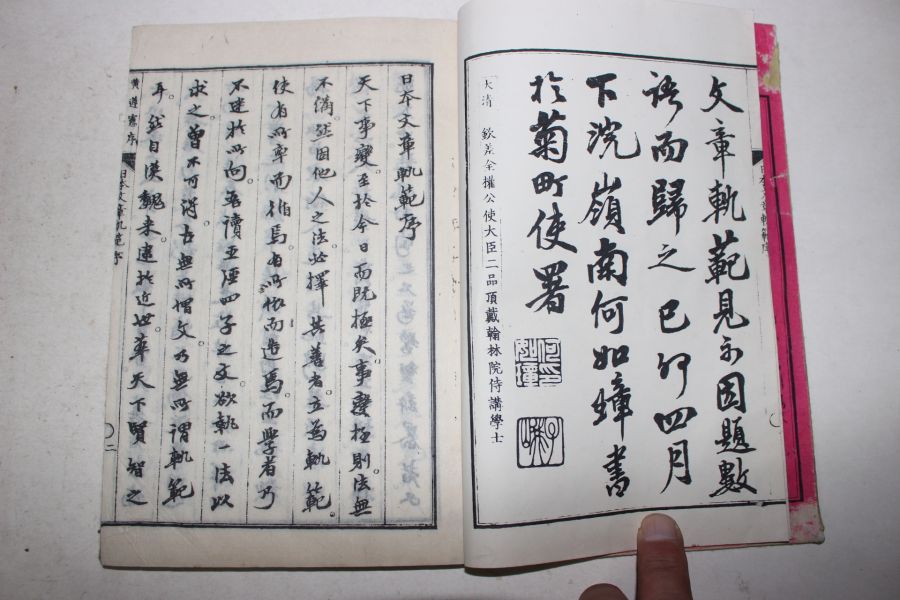 文章軌範見示因題數
語而歸之己卯四月
下浣嶺南何如璋書
於菊町使署
何印如璋
子峨
大清 欽差全權公使大臣二品頂戴翰林院侍講學士
日本文章軌範序
天下事變。至於今日而既極矣。事變極則法無
不備。然因他人之法。必擇其善者。立為軌範。
使有所率而循焉。有所依而造焉。而學者乃
不迷於所向。吾讀五經四子之文。欲執一法以
求之。曾不可得。古無所謂文。乃無所謂軌範
耳。然自漢魏来。逮於近世。率天下賢智之
黃遵憲序
日本文章軌範序
二